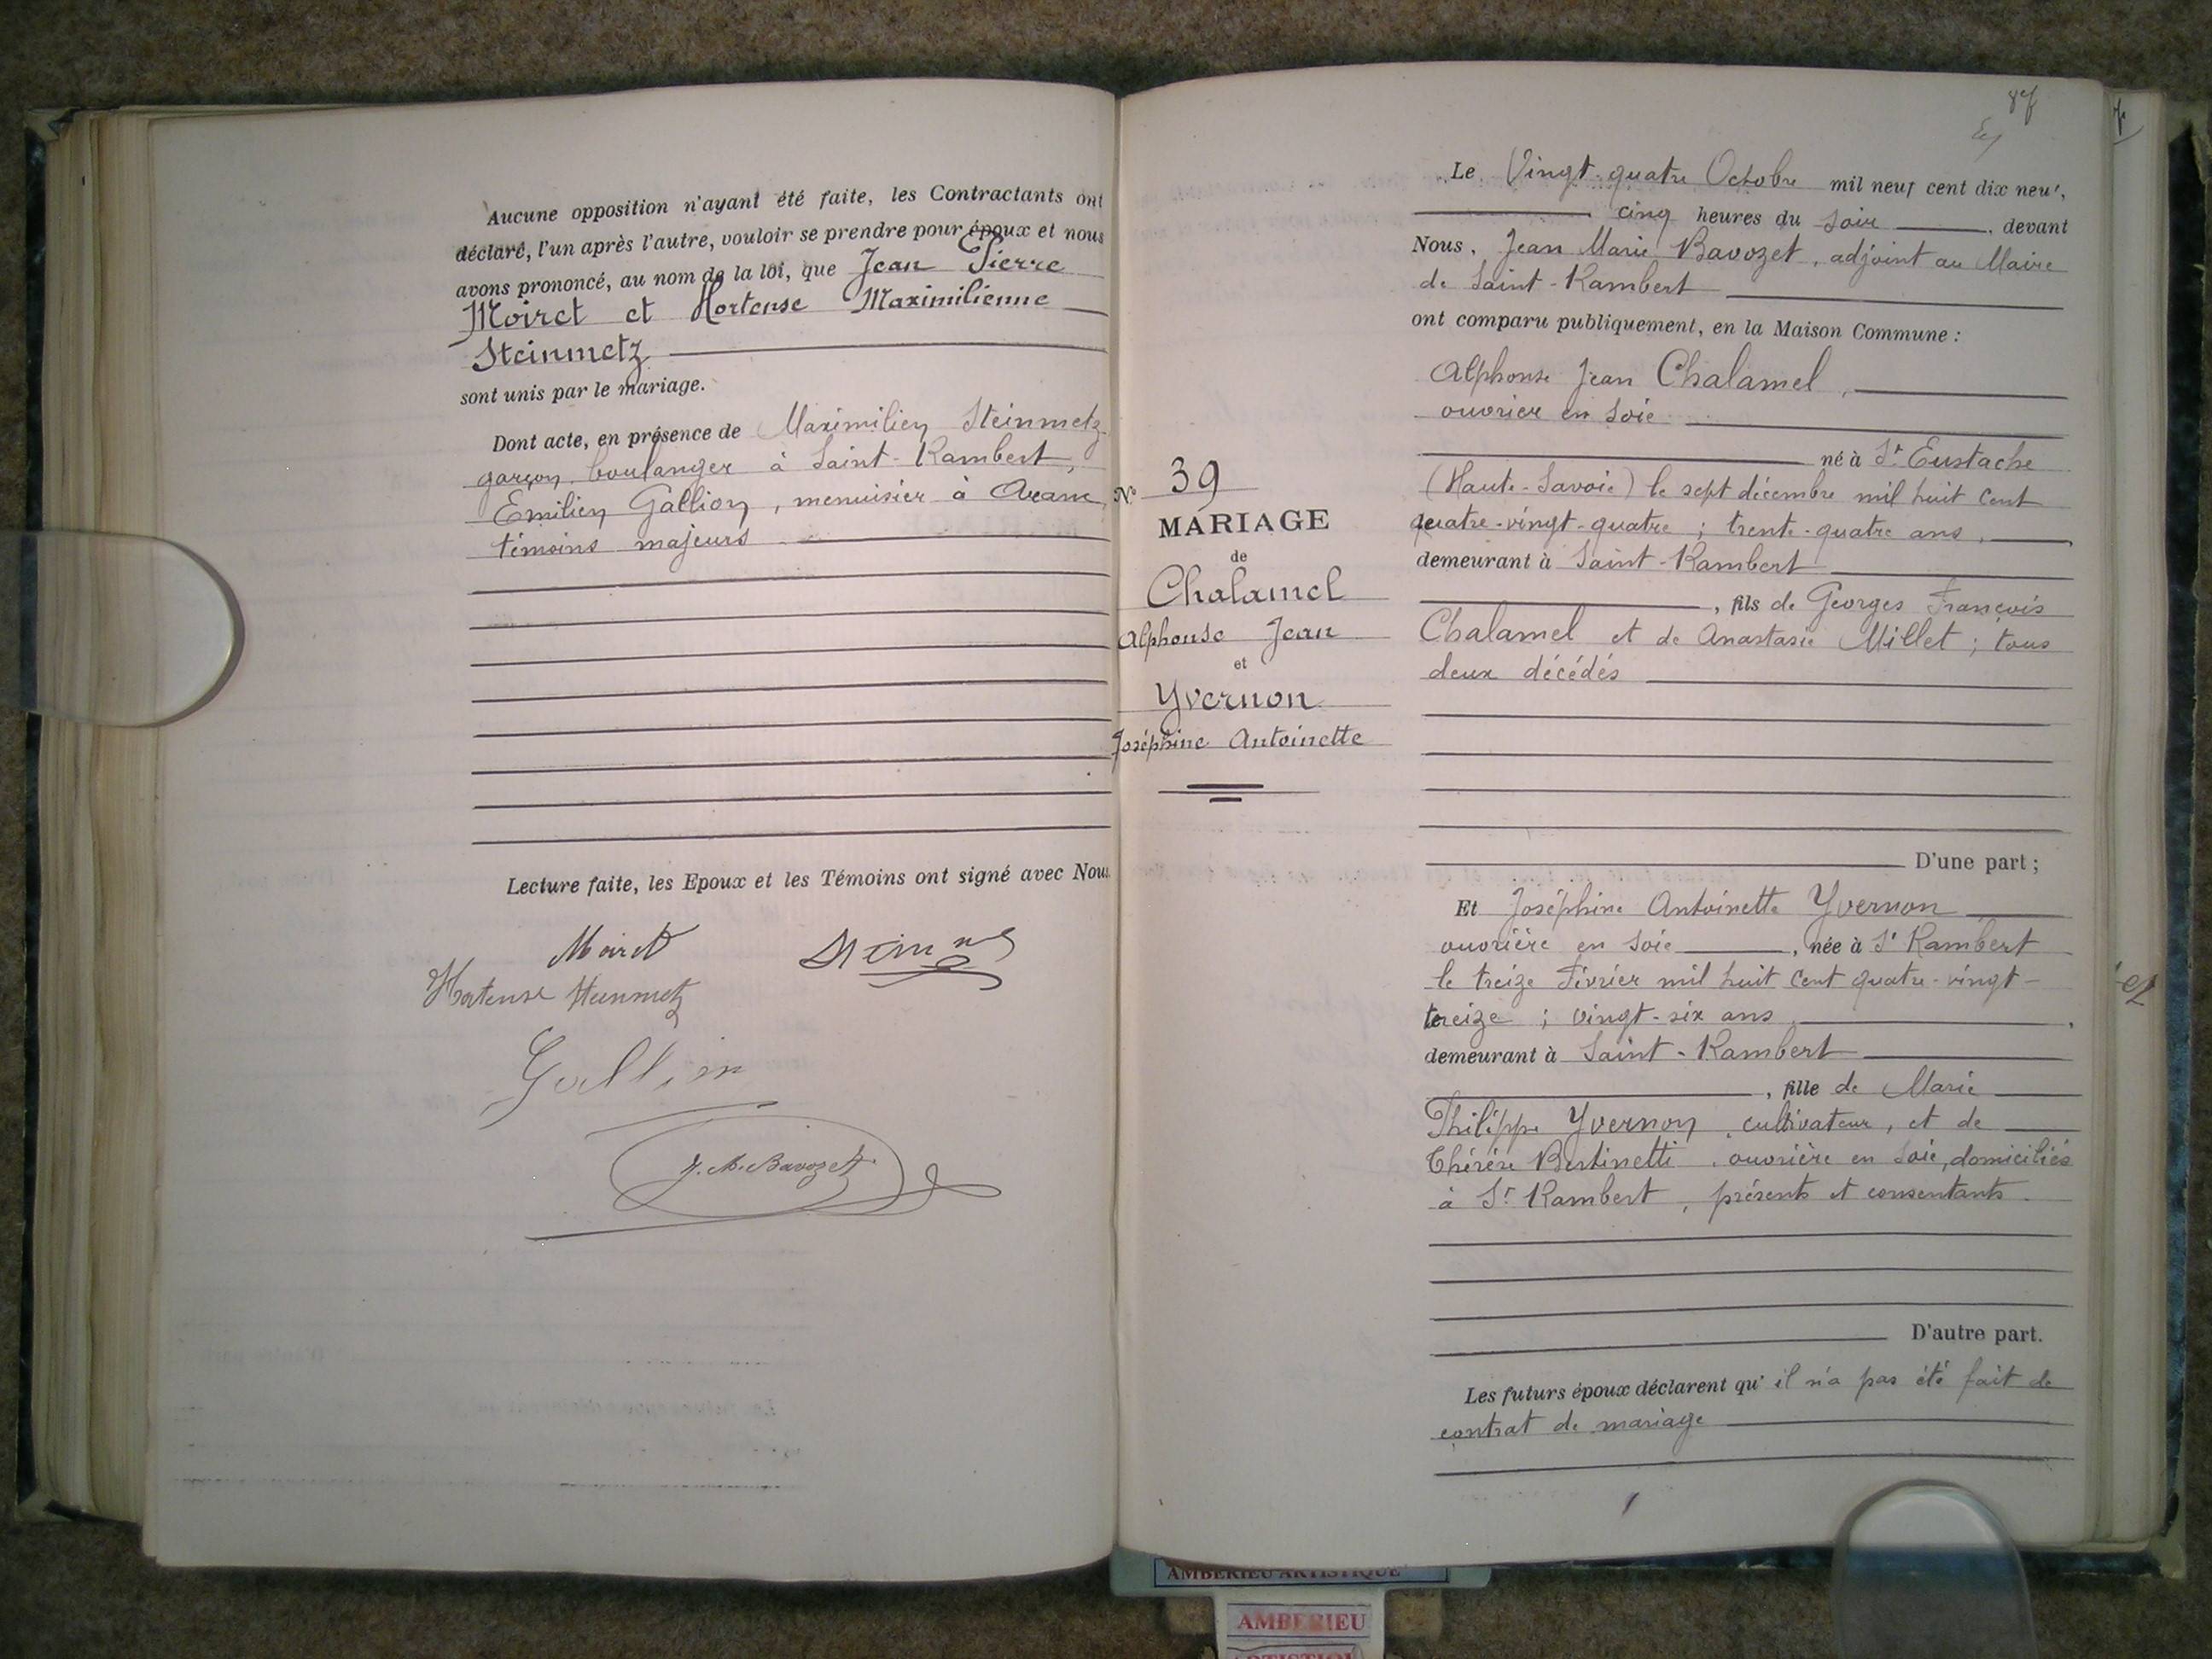 Aucune opposition n'ayant été faite, les Contractants ont
déclaré, l'un après l'autre, vouloir se prendre pour époux et nous
avons prononcé, au nom de la loi, que Jean Pierre
Moiret et Hortense Maximilienne
Steinmetz
sont unis par le mariage.
Dont acte, en présence de Maximilien Steinmetz
garçon boulanger à Saint-Rambert,
Emilien Gallion, menuisier à Aranc,
témoins majeurs
Lecture faite, les Epoux et les Témoins ont signé avec Nous
Moiret
Hortense Steinmetz
Gallion
J. M. Bavozet
87
N° 39
MARIAGE
de
Chalamel
Alphonse Jean
et
Yvernon
Joséphine Antoinette
Le Vingt-quatre Octobre mil neuf cent dix neuf,
cinq heures du soir, devant
Nous, Jean Marie Bavozet, adjoint au Maire
de Saint-Rambert
ont comparu publiquement, en la Maison Commune :
Alphonse Jean Chalamel,
ouvrier en soie
né à St Eustache
(Haute-Savoie) le sept décembre mil huit cent
quatre-vingt-quatre ; trente-quatre ans,
demeurant à Saint-Rambert
, fils de Georges François
Chalamel et de Anastasie Millet ; tous
deux décédés
D'une part ;
Et Joséphine Antoinette Yvernon
ouvrière en soie, née à St Rambert
le treize Février mil huit cent quatre-vingt-
treize ; vingt-six ans,
demeurant à Saint-Rambert
, fille de Marie
Philippe Yvernon, cultivateur, et de
Thérèse Bertinetti, ouvrière en soie, domiciliés
à St Rambert, présents et consentants.
D'autre part.
Les futurs époux déclarent qu'il n'a pas été fait de
contrat de mariage
AMBERIEU ARTISTIQUE
AMBERIEU